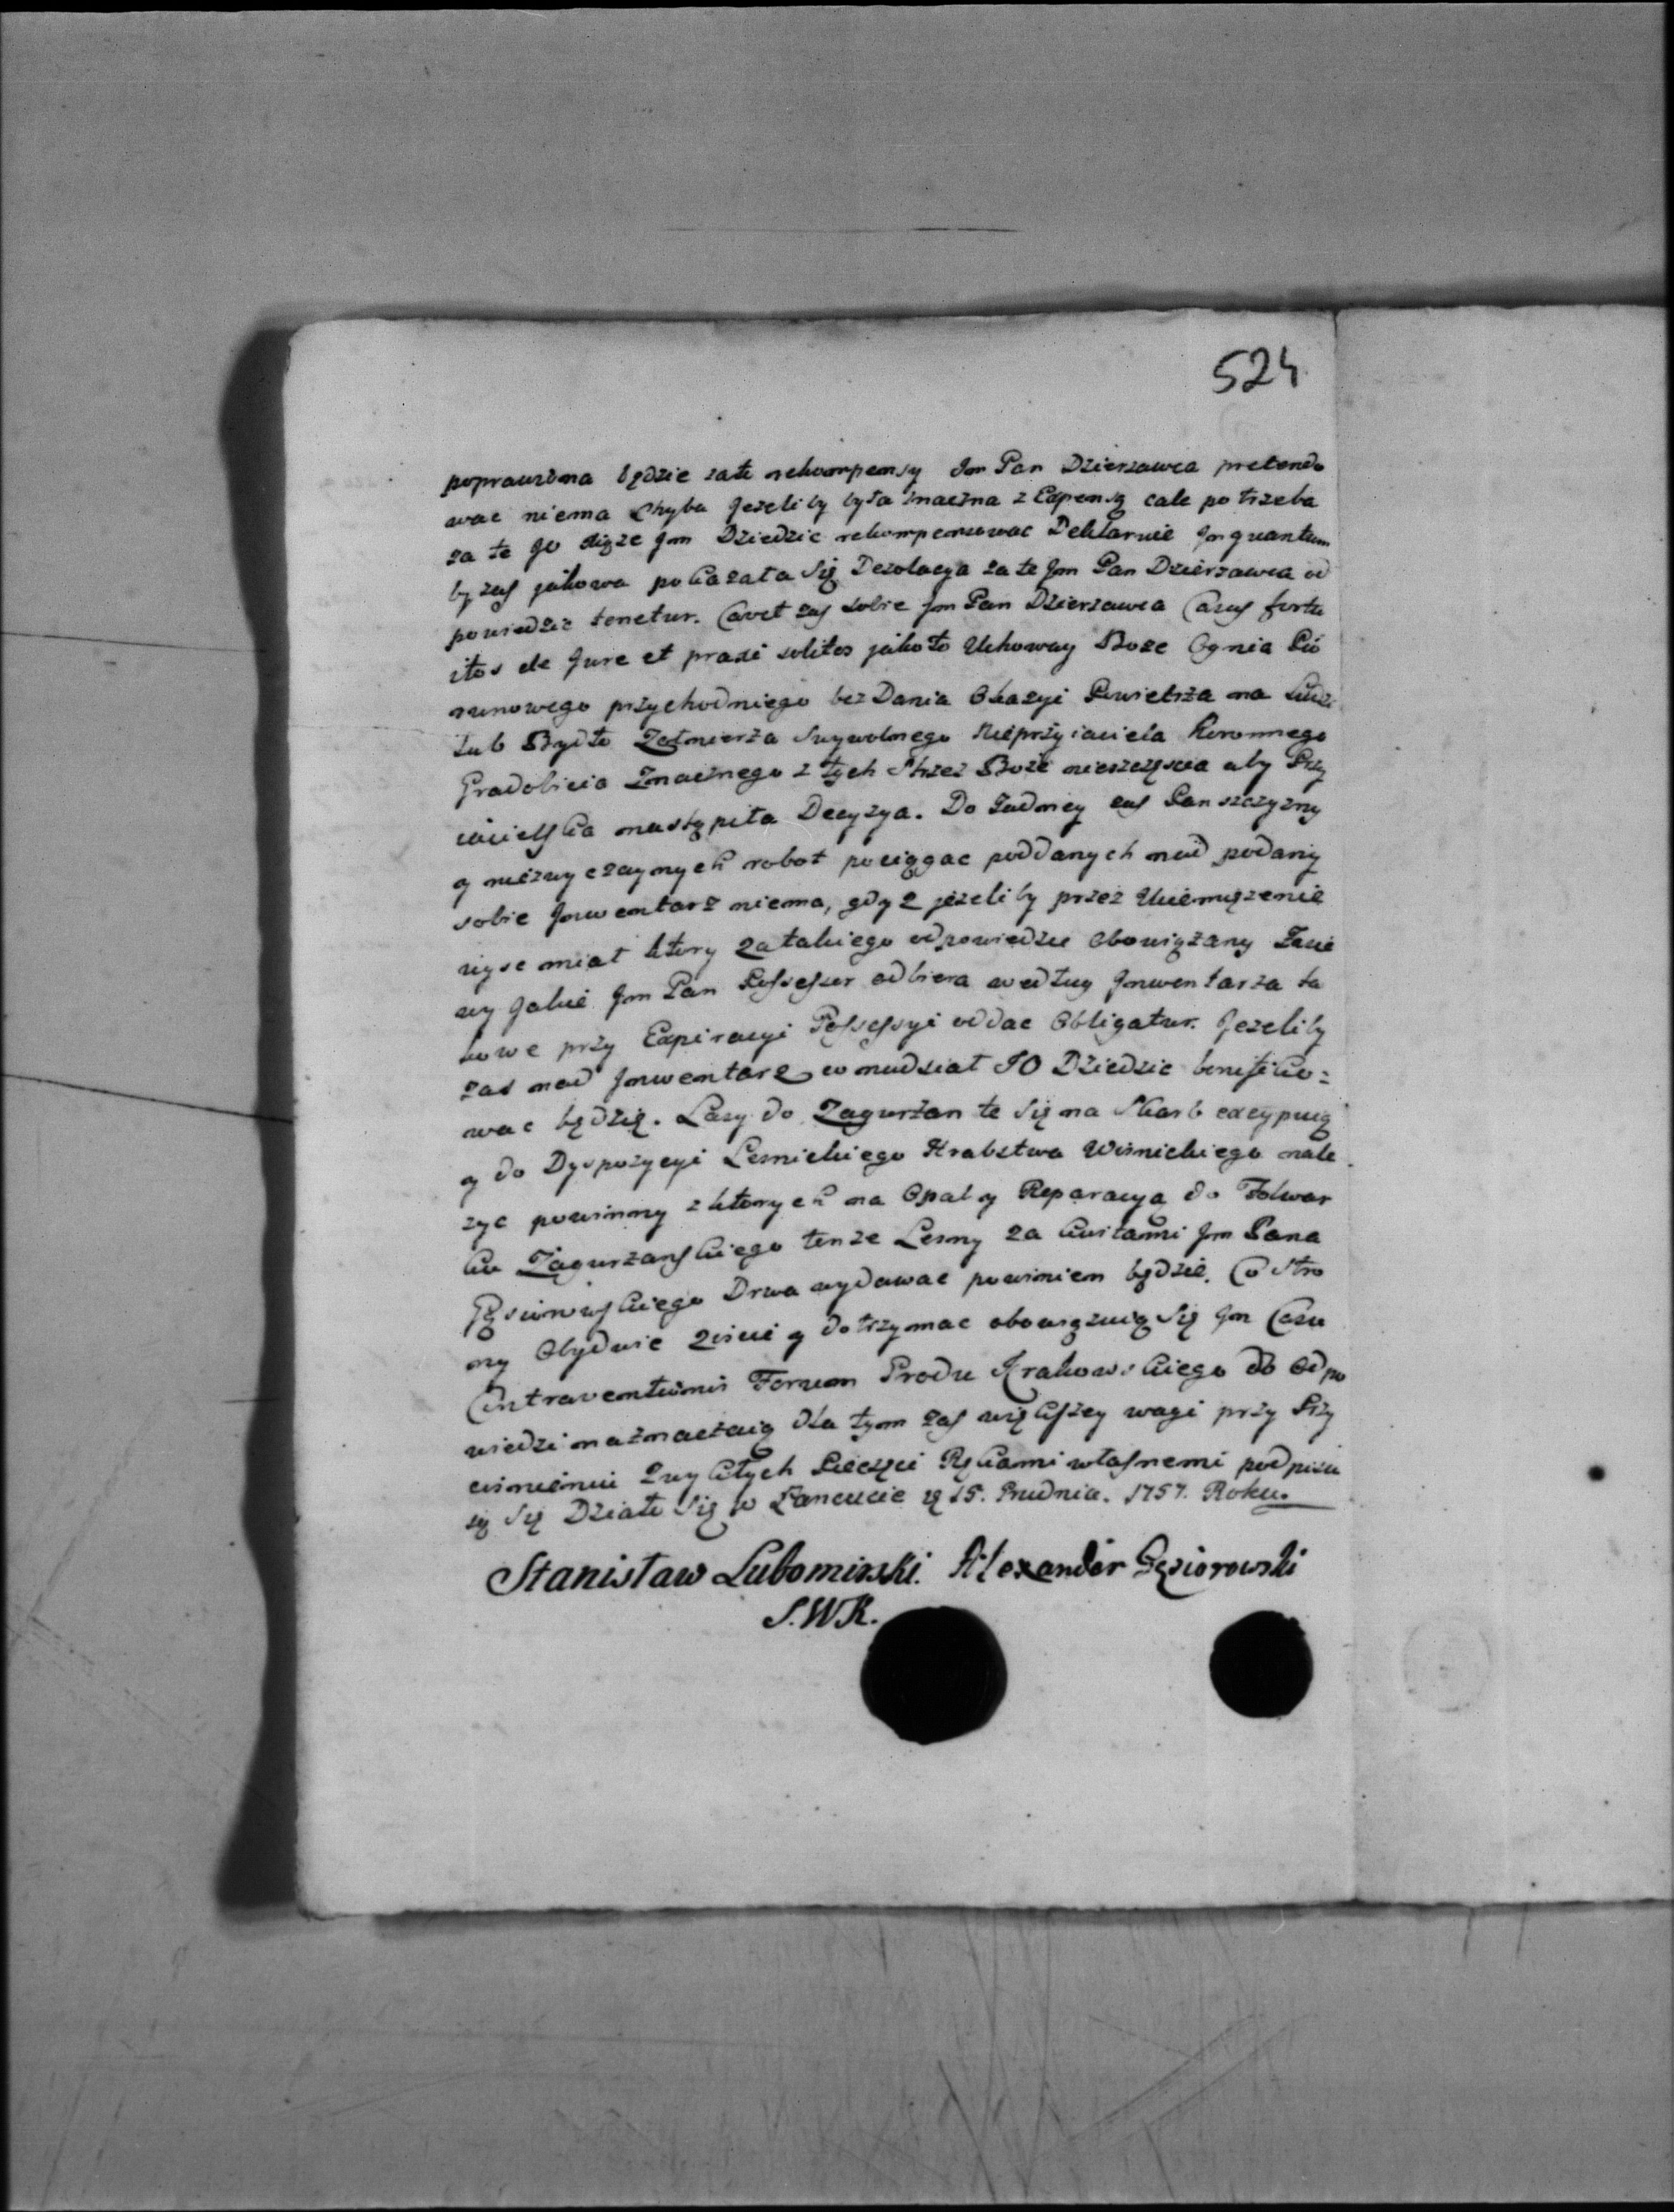 524
poprawiona będzie zate rekompensy Im Pan Dzierzawca pretendo
wac niema Chyba Jezeli by była znaczna z Expensą cale potrzeba
za te Im Dziedzic rekompensowac Deklaruie Inquantum
by zas jakowa pokazała się Dezolacya za te Jm Pan Dzierzawca od
powiedzic tenetur. Cavet zas sobie Jm Pan Dzierzawca Casus fortu
itos de Jure et praxi solitos jako to Uchoway Boze Ognia Pio
runowego przychodniego bez Dania Okazyi Powietrza na Ludzi
lub Bydło Zołnierza Swywolnego Nieprzyiaciela Koronnego
Gradobicia Znacznego z tych Strzez Boze nieszczęscia aby Przy
iacielska nastąpiła Decyzya. Do Zadney zas Panszczyzny
y niezwyczaynych robot pociągac poddanych nad podany
sobie Inwentarz niema, gdyz jezeli by przez Uciemięzenie
wysc miał ktory za takiego odpowiedziec Obowiązany Zasie
wy Jakie Jm Pan Possessor odbiera według Inwentarza ta
kowe przy Expiracyi Possessyi oddac Obligatur. Jezeli by
zas nad Inwentarz co nadsiał JO Dziedzic bonifiko=
wac będzie. Lasy do Zagurzan te Się na Skarb excypuią
y do Dyspozycyi Lesnickiego Hrabstwa Wisnickiego nale
zyc powinny z ktorych na Opał y Reparacyą do Folwar
ku Zagurzanskiego tenze Lesny za kwitami Jm Pana
Gąsiorowskiego Drwa wydawac powinien będzie. Co Stro
ny Obydwie ziscic y dotrzymac obowiązuią Się Jm Casu
Contraventionis Forum Grodu Krakowskiego do Odpo
wiedzi naznaczaią dla tym zas większey wagi przy Przy
cisnieniu Zwykłych Pieczęci Rękami własnemi podpisu
ią Się Działo Się w Łancucie 15. Grudnia. 1757. Roku.
Stanisław Lubomirski. Alexander Gąsiorowski
S.W.K.